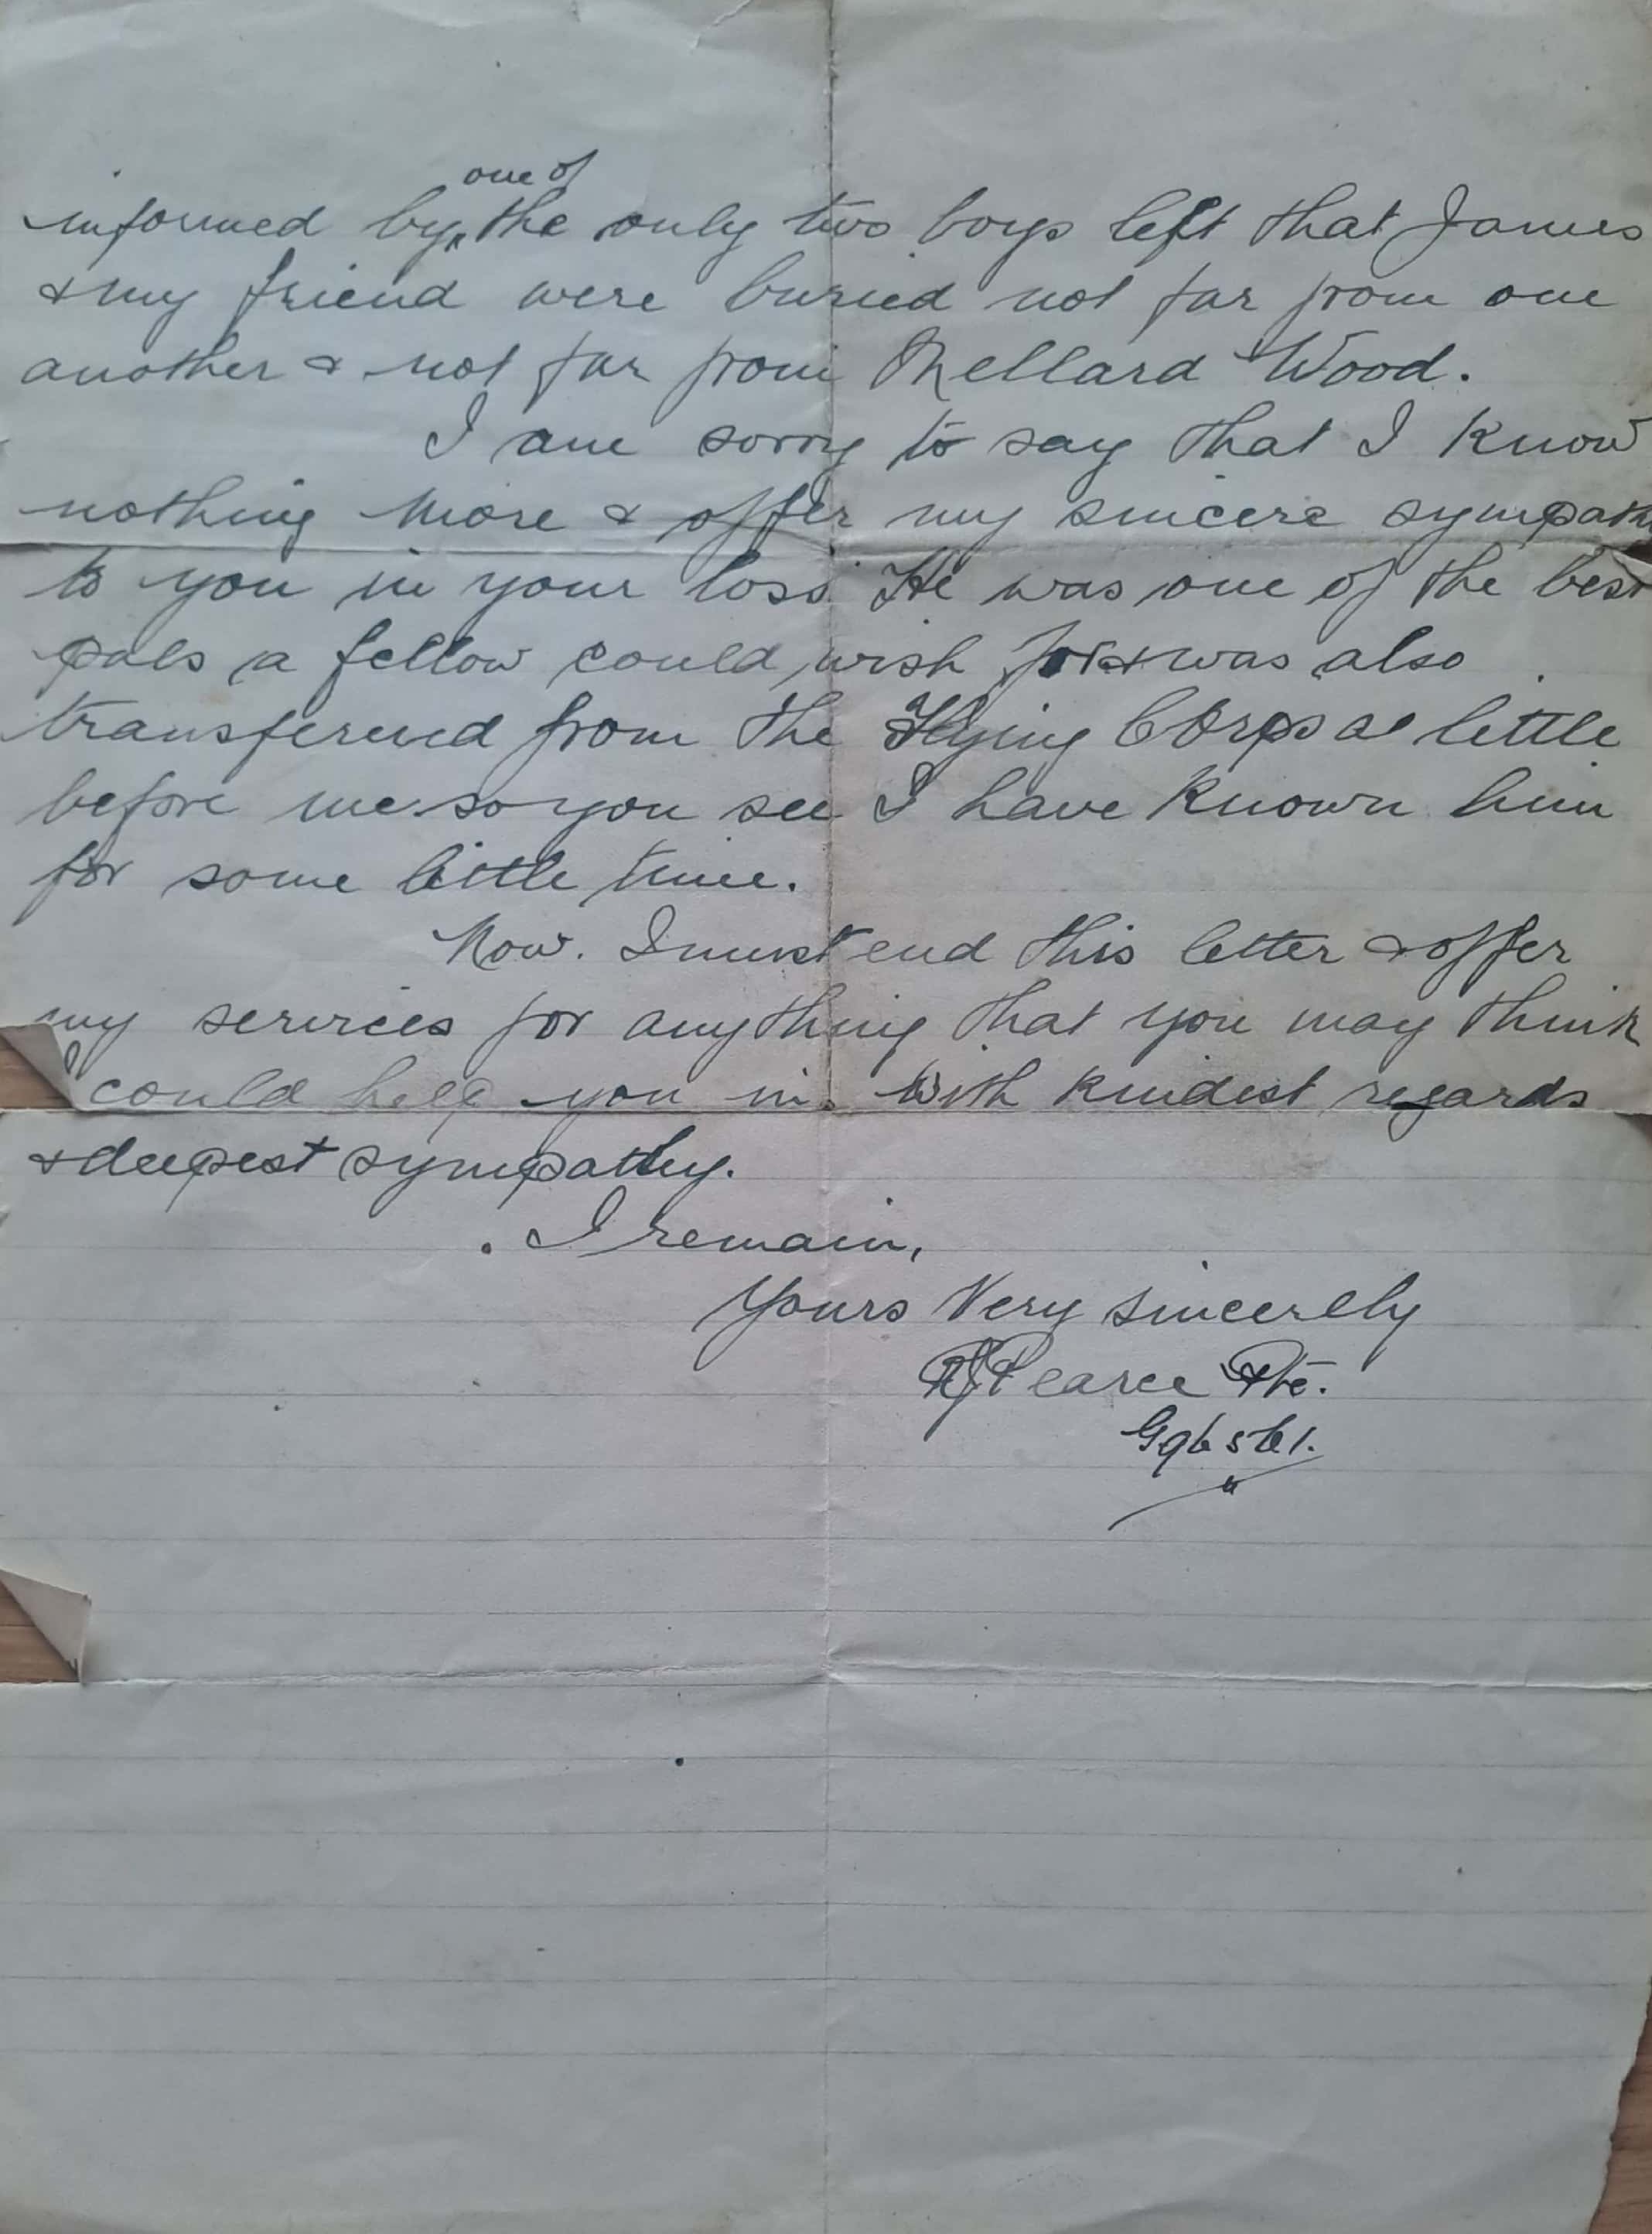 one of
informed by the only two boys left that James
& my friend were buried not far from one
another & not far from Mellard Wood.
I am sorry to say that I know
nothing more & offer my sincere sympath
to you in your loss. He was one of the best
pals a fellow could wish for & was also
transfered from the Flying Corps a little
before me so you see I have known him
for some little time.
Now. I must end this letter & offer
my services for anything that you may think
I could help you in. With kindest regards
& deepest sympathy.
I remain,
Yours Very sincerely
Pearce Pte.